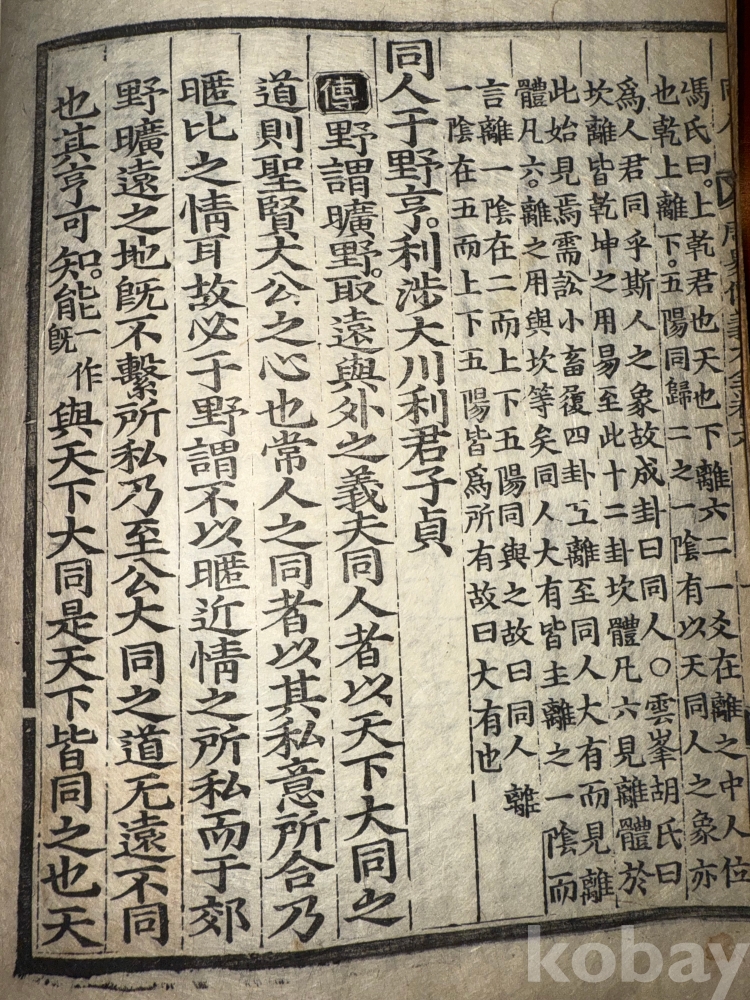 馮氏曰。上乾君也天也下離六二一爻在離之中人位
也乾上離下。五陽同歸二之一陰有以天同人之象亦
爲人君同乎斯人之象故成卦曰同人○雲峯胡氏曰
坎離皆乾坤之用易至此十二卦坎體凡六見離體於
此始見焉需訟小畜履四卦互離至同人大有而見離
體凡六。離之用與坎等矣同人大有皆主離之一陰而
言離一陰在二而上下五陽同與之故曰同人 離
一陰在五而上下五陽皆爲所有故曰大有也
同人于野亨。利涉大川利君子貞
傳 野謂曠野。取遠與外之義夫同人者以天下大同之
道則聖賢大公之心也常人之同者以其私意所合乃
暱比之情耳故必于野謂不以暱近情之所私而于郊
野曠遠之地旣不繫所私乃至公大同之道无遠不同
也其亨可知。能一作旣與天下大同是天下皆同之也天
kobay